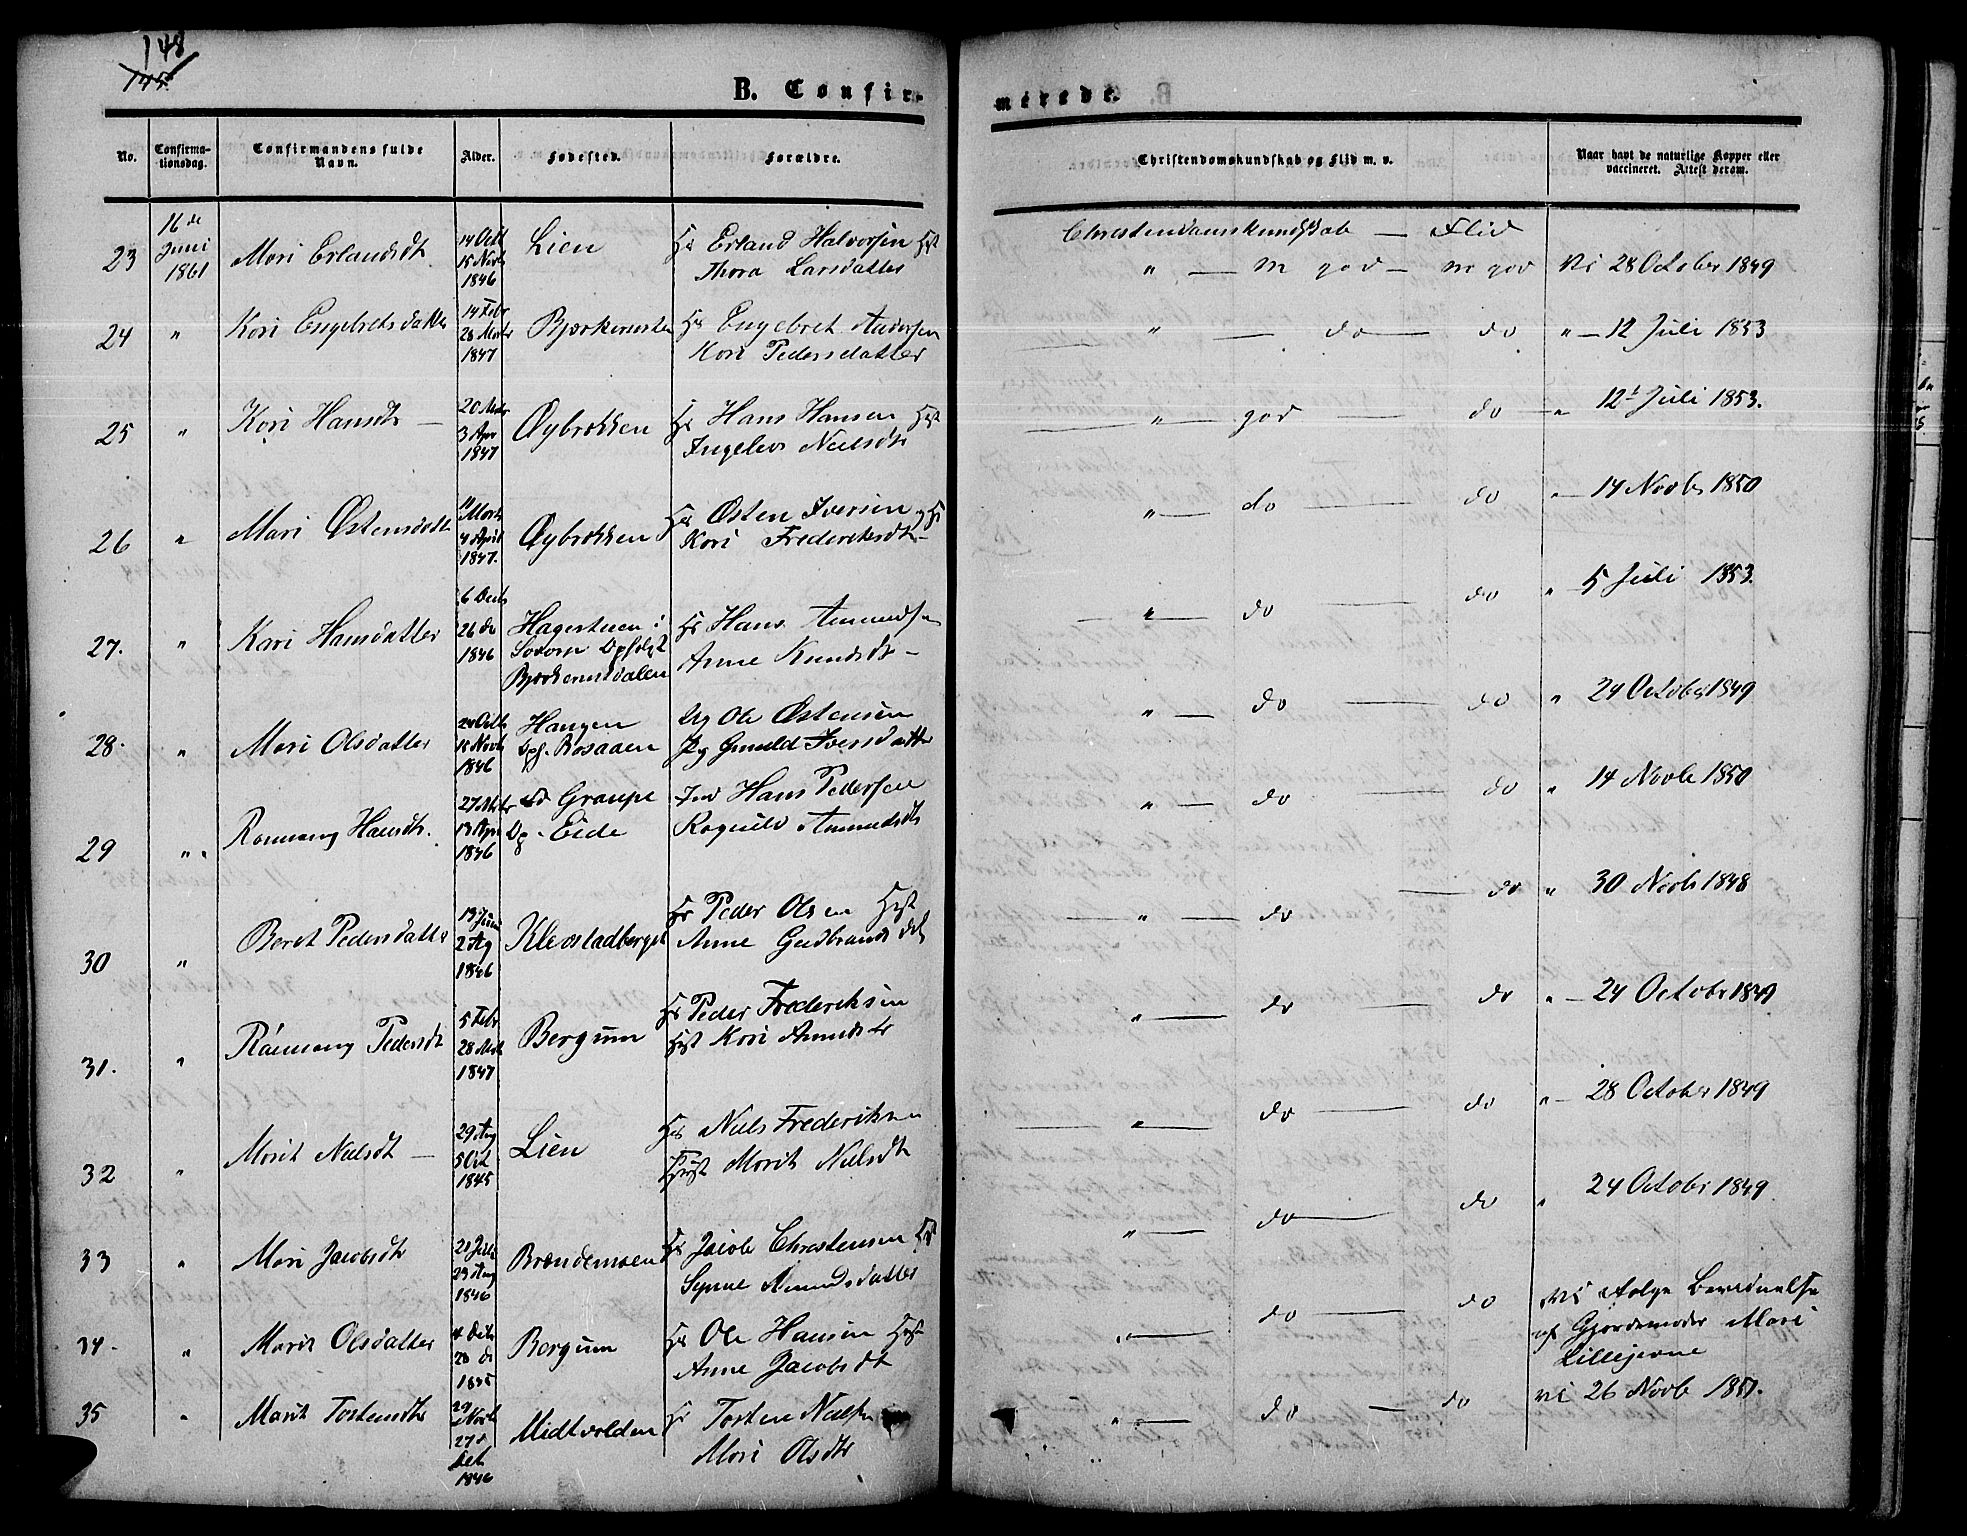 148
145.
B. Confir- merede.
No. Confirma-tionsdag. Confirmandens fulde Navn. Alder. Fødested. Forældre. Christendomskundskab og Flid m. v. Naar havt de naturlige Kopper eller vaccineret. Attest derom.
16de Juni 1861
Christendomskundskab — Flid
23 Mari Erlandsdt. 14 Octb 15 Novb 1846 Lien Erland Halvorsen
Thora Larsdatter " — m god — m god Vi 28 October 1849
24 " Kari Engebretsdatter 14 Febr 28 Marts 1847 Engebret Andersen
Kari Pedersdatter " — do — do " — 12 Juli 1853
25 " Kari Hansdt — 3 Apr 1847 Øybrækken Hans Hansen
Ingelev Nielsdt " god — do " 12 Juli 1853.
26 " Mari Østensdatt Marts 4 April 1847. Øybrækken Østen Iversen
Kari Frederiksdt — " — do — do " — 14 Novbr 1850
27. " Kari Hansdatter 6 Decb 26 do 1846 Hagestuen i
Bjørkerusdalen Hans Amundsen
Anne Knudsdt — " — do — do " 5 Juli 1853.
28. " Mari Olsdatter 15 Novb 1846 Haugen
Opf. Rosaaen Ole Østensen
Iversdatter " — do — do " 24 October 1849
29 " Rønnaug Hansdt. 13 Apr 1846 Graupe
Op. Eide Ind Hans Pedersen
Ragnild Amundsdt " — do — do " 14 Novbr 1850
30 " Beret Pedersdatter 2 Aug 1846 Klevstadberget Peder Olsen
Anne Gudbrandsdt " — do — do " 30 Novbr 1848
31. " Rønnaug Pedersdt 5 Febr 28 Marts 1847 Bergum Peder Frederiksen
Kari Amundsdt " — do — do " — 24 October 1849
32 " Marit Nielsdt — 29 Aug 5 Oct 1845 Lien Niels Frederiksen
Marit Nielsdt " — do — do " — 28 October 1849
33 " Mari Jacobsdt 23 Aug 1846 Brændemoen Jacob Christensen
Synne Amundsdatter " — do — do " 24 October 1849.
34. " Marit Olsdatter Bergum Ole Hansen
Anne Jacobsdt " — do — do Vi ifølge
af Gjordemoder Mari
Lillejorne
35 " Marit Torstensdt 29 Novb 27 Decb 1846 Midtvolden Torsten Nielsen
Mari Olsdt " — do — do Vi 26 Novb 1851.